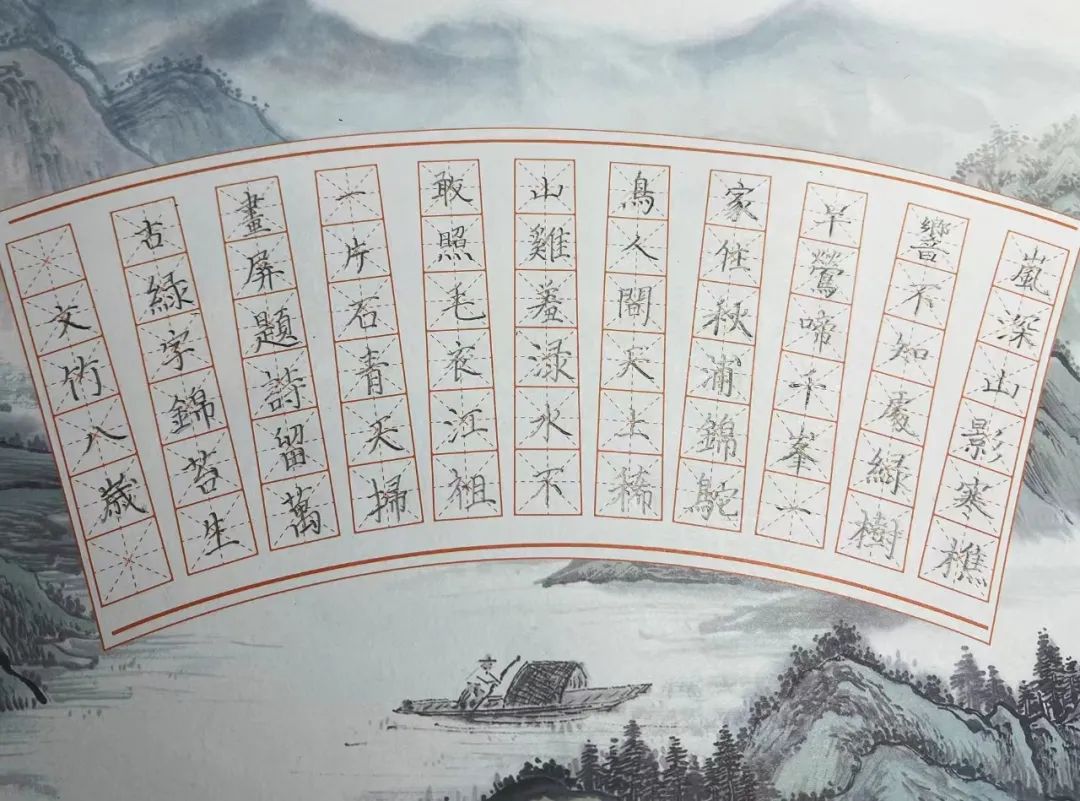 嵐深山影寒樵
響不知處緑樹
早鶯啼千峯一
家住秋浦錦駝
鳥人間天上稀
山雞羞渌水不
敢照毛衣江祖
一片石青天掃
畫屏題詩留萬
古緑字錦苔生
文竹八歲